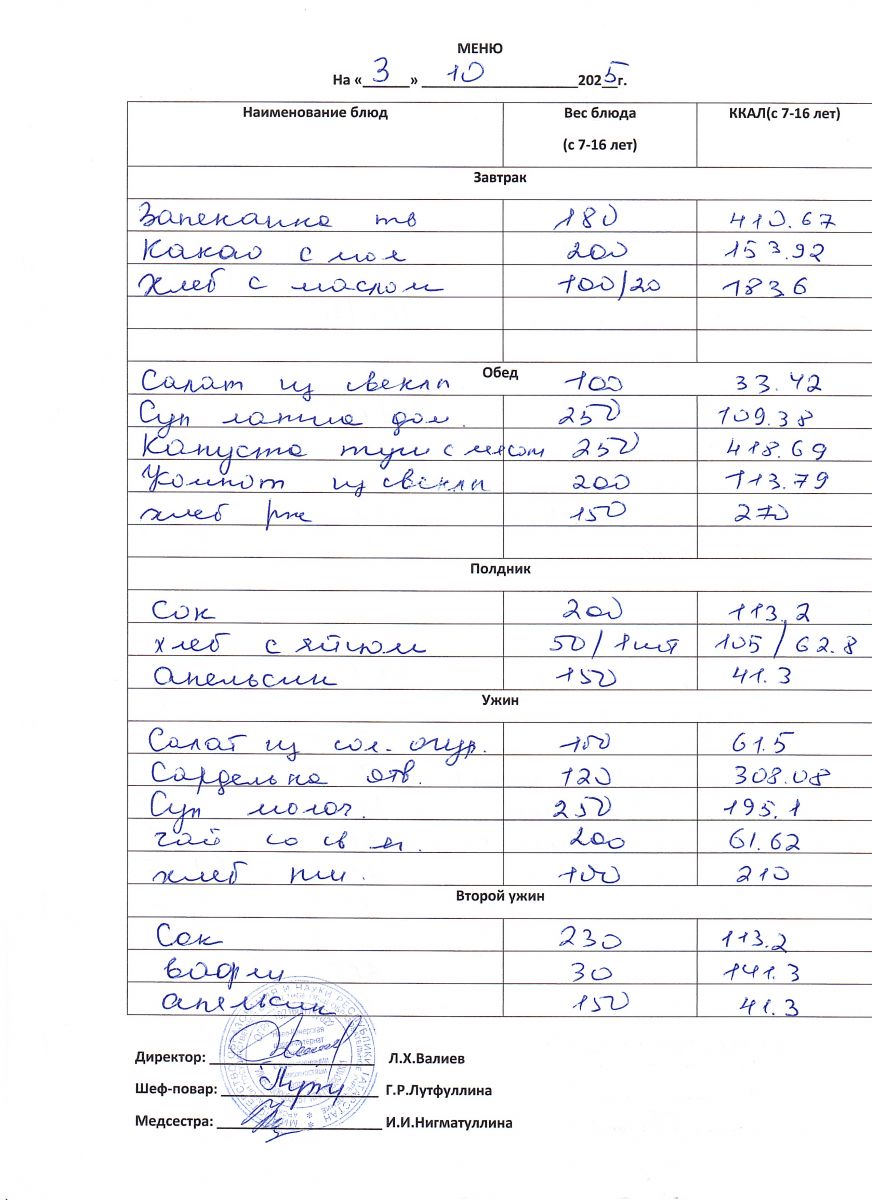 МЕНЮ
На «3» 10 2025г.
Наименование блюд Вес блюда (с 7-16 лет) ККАЛ(с 7-16 лет)
Завтрак
Запеканка тв 180 410.67
Какао с мол 200 153.92
Хлеб с маслом 100/20 183 6
Обед
Салат из свеклы 100 33.42
Суп лапша дом. 250 109.38
Капуста туш с мясом 250 418.69
Компот из свеклы 200 113.79
хлеб рж 150 270
Полдник
Сок 200 113.2
хлеб с яйцом 50/1шт 105/62.8
Апельсин 150 41.3
Ужин
Салат из сол. огур. 100 61.5
Сарделька отв. 120 308.08
Суп молоч. 250 195.1
чай со св м. 200 61.62
хлеб пш. 100 210
Второй ужин
Сок 230 113.2
вафли 30 141.3
апельсин 150 41.3
Директор: Л.Х.Валиев
Шеф-повар: Г.Р.Лутфуллина
Медсестра: И.И.Нигматуллина